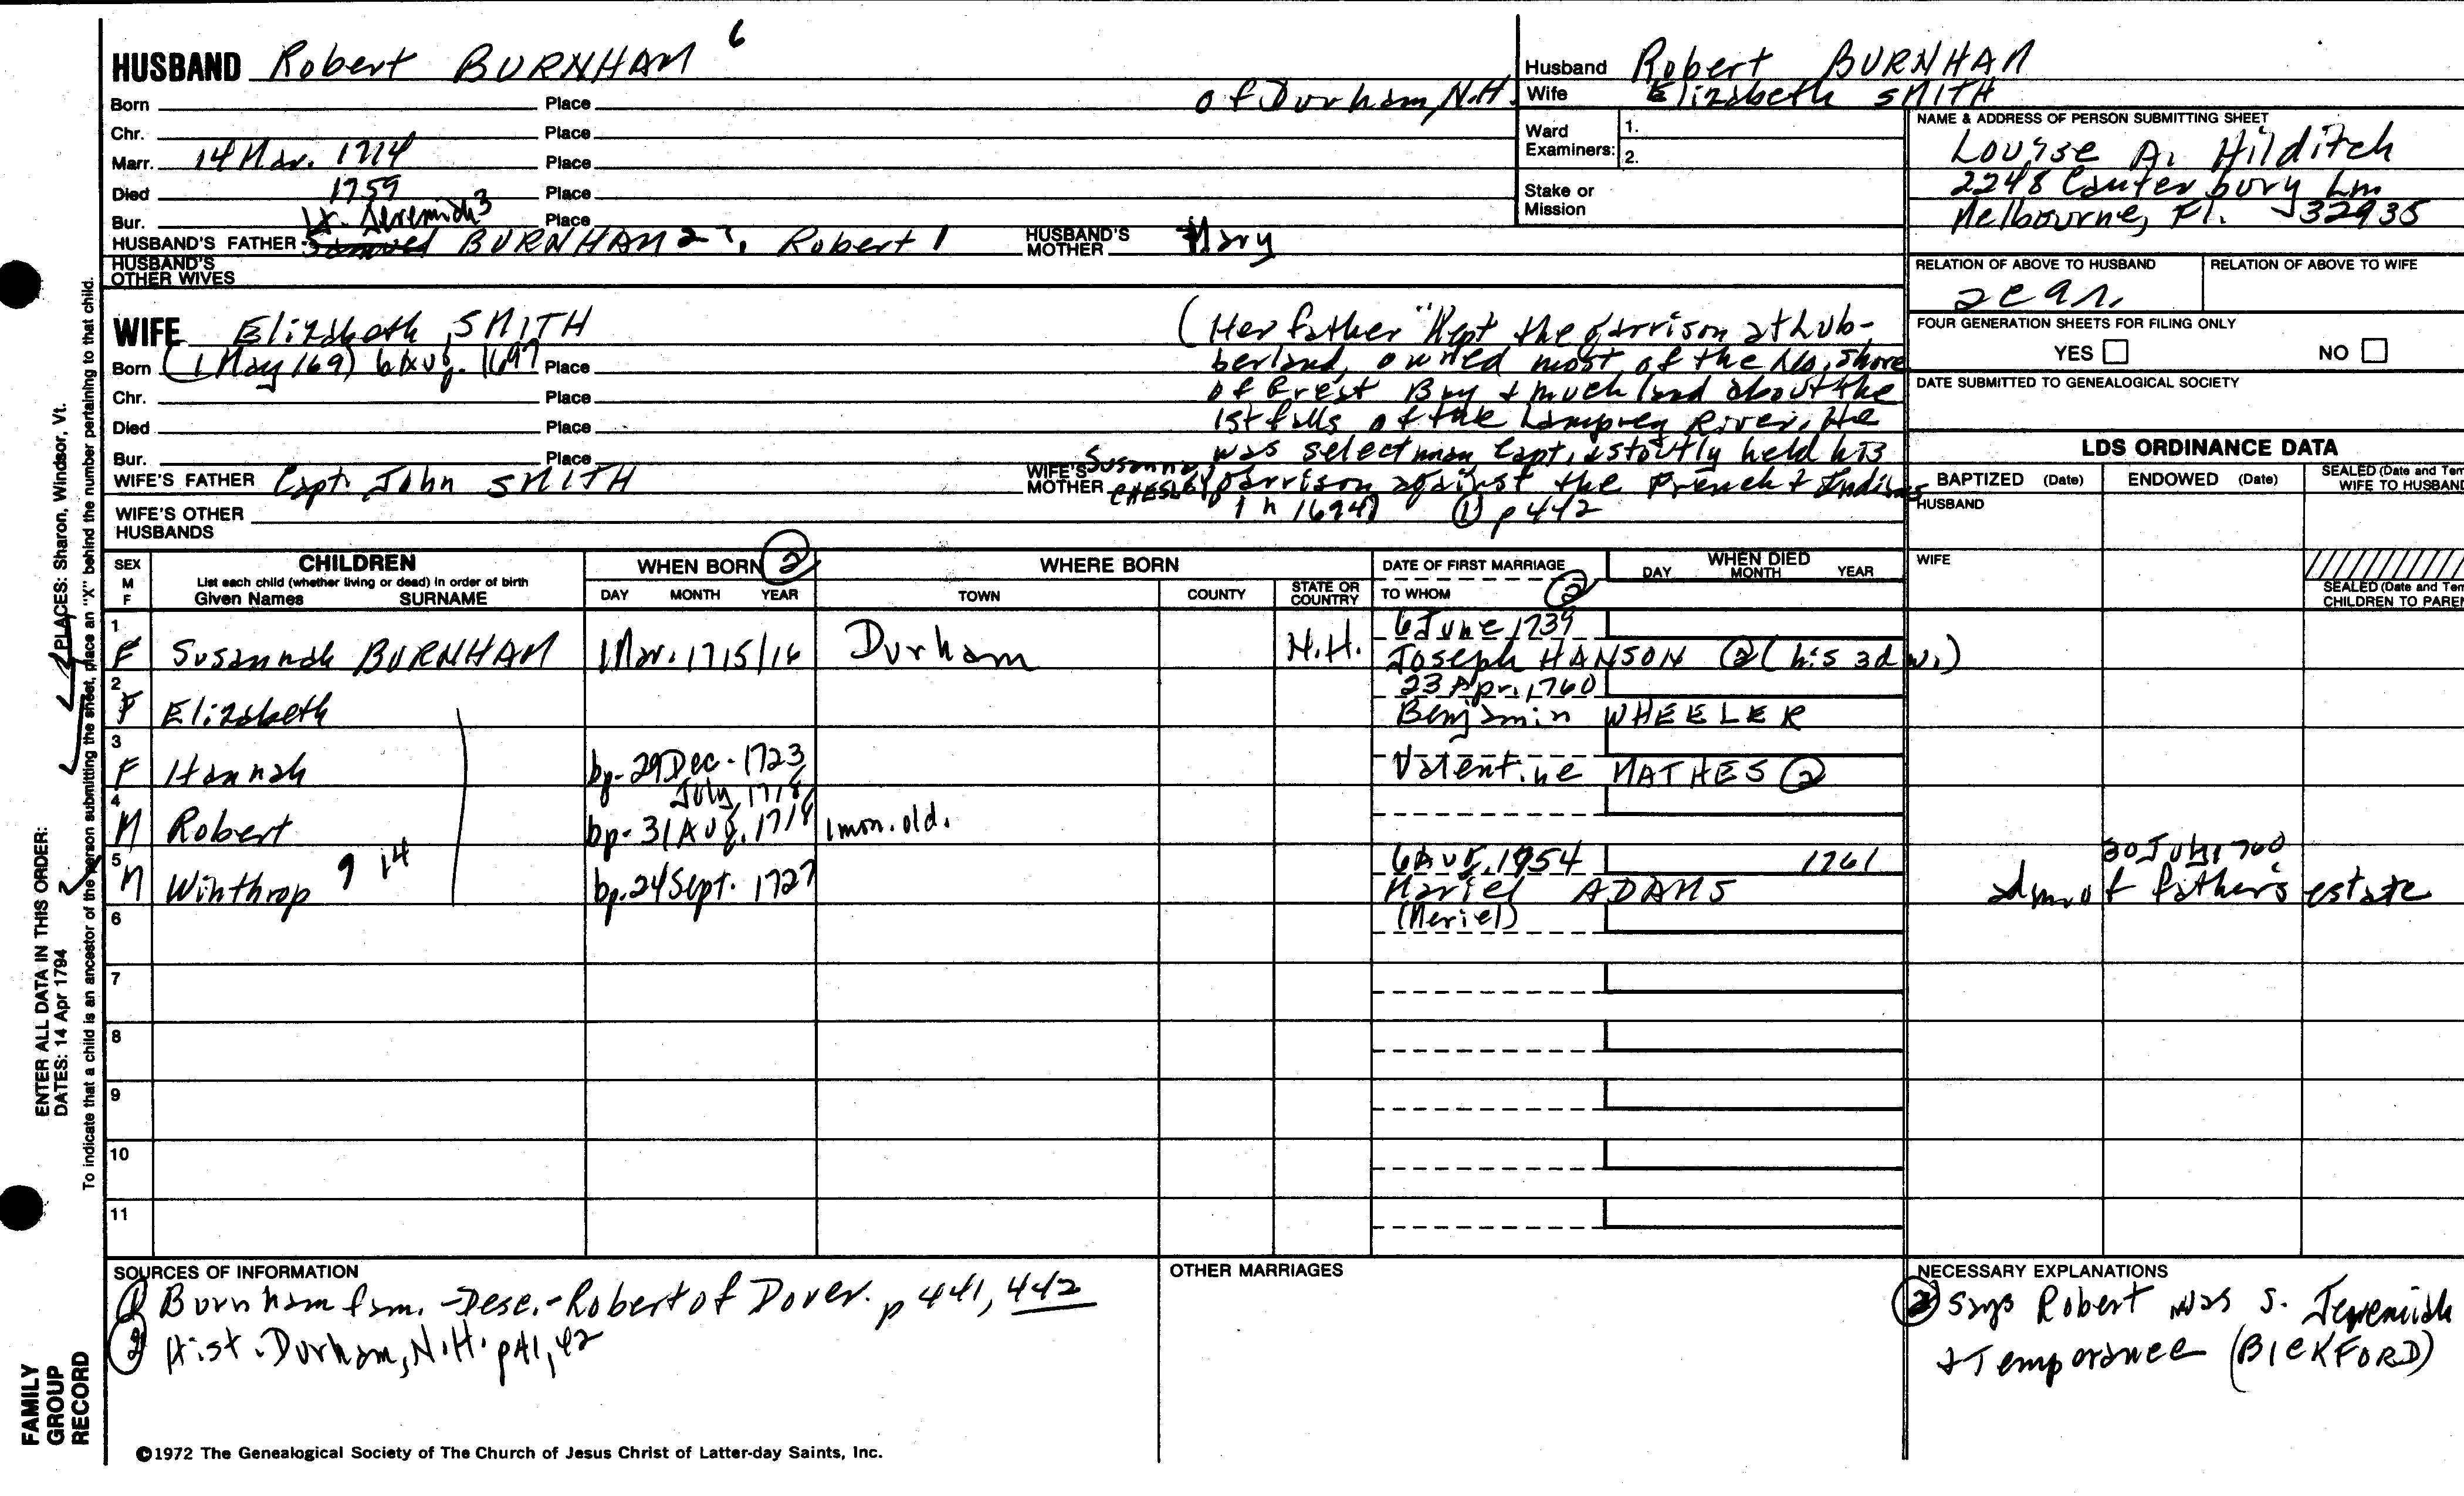 HUSBAND Robert BURNHAM 6
Born Place of Durham, N.H.
Chr. Place
Marr. 14 Mar. 1714 Place
Died 1759 Place
Bur. Place
Lt. Jeremiah 3
HUSBAND'S FATHER Samuel BURNHAM 2 ?, Robert 1 HUSBAND'S MOTHER Mary
HUSBAND'S OTHER WIVES
Husband Robert BURNHAM
Wife Elizabeth SMITH
Ward Examiners: 1.
2.
Stake or Mission
NAME & ADDRESS OF PERSON SUBMITTING SHEET
Louise A. Hilditch
2248 Canterbury Ln
Melbourne, Fl. 32935
RELATION OF ABOVE TO HUSBAND RELATION OF ABOVE TO WIFE
FOUR GENERATION SHEETS FOR FILING ONLY
YES NO
DATE SUBMITTED TO GENEALOGICAL SOCIETY
WIFE Elizabeth SMITH
Born (1 May 169) 6 Aug. 1697 Place
Chr. Place
Died Place
Bur. Place
WIFE'S FATHER Capt. John SMITH WIFE'S MOTHER Susanna CHESLEY
WIFE'S OTHER HUSBANDS
(Her father "Kept the garrison at Lub-
berland, owned most of the No. shore
of Great Bay & much land about the
1st falls of the Lamprey River. He
was selectman Capt. & stoutly held his
garrison against the French & Indians
in 1694) ① p 442
LDS ORDINANCE DATA
BAPTIZED (Date) ENDOWED (Date) SEALED (Date and Tem
WIFE TO HUSBAND
HUSBAND
WIFE
SEALED (Date and Tem
CHILDREN TO PAREN
SEX M F CHILDREN
List each child (whether living or dead) in order of birth
Given Names SURNAME
WHEN BORN ②
DAY MONTH YEAR
WHERE BORN
TOWN COUNTY STATE OR COUNTRY
DATE OF FIRST MARRIAGE
TO WHOM ②
WHEN DIED
DAY MONTH YEAR
1 6 June 1739
F Susannah BURNHAM 1 Mar. 1715/16 Durham N.H. Joseph HANSON ② (his 3d w.)
2 23 Apr. 1760
F Elizabeth Benjamin WHEELER
3
F Hannah bp. 29 Dec. 1723 Valentine MATHES ②
4 July 1718
M Robert bp. 31 Aug. 1718 1 mon. old.
5 6 Aug. 1754 1761 30 July 1760
M Winthrop 9 14 bp. 24 Sept. 1727 Mariel ADAMS adm. of father's estate
6 (Meriel)
7
8
9
10
11
SOURCES OF INFORMATION
① Burnham fam. - Desc. - Robert of Dover. p 441, 442
② Hist. Durham, N.H. p 41, 42
OTHER MARRIAGES
NECESSARY EXPLANATIONS
② says Robert was s. Jeremiah
& Temperance (BICKFORD)
©1972 The Genealogical Society of The Church of Jesus Christ of Latter-day Saints, Inc.
FAMILY
GROUP
RECORD
ENTER ALL DATA IN THIS ORDER:
DATES: 14 Apr 1794 PLACES: Sharon, Windsor, Vt.
To indicate that a child is an ancestor of the person submitting the sheet, place an "X" behind the number pertaining to that child.